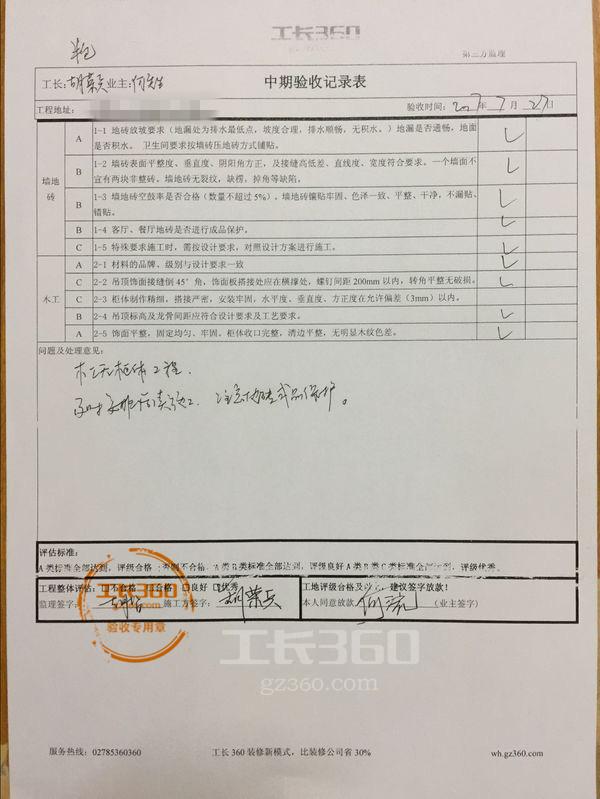 工长360
第三方监理
半包
工长：胡荣兵 业主：何先生
中期验收记录表
工程地址：
验收时间：2017年7月27日
墙地砖
A 1-1 地砖放坡要求（地漏处为排水最低点，坡度合理，排水顺畅，无积水。）地漏是否通畅，地面是否积水。 卫生间要求按墙砖压地砖方式铺贴。
B 1-2 墙砖表面平整度、垂直度、阴阳角方正，及接缝高低差、直线度、宽度符合要求。一个墙面不宜有两块非整砖。墙地砖无裂纹，缺楞，掉角等缺陷。
B 1-3 墙地砖空鼓率是否合格（数量不超过5%）。墙地砖镶贴牢固、色泽一致、平整、干净，不漏贴、错贴。
B 1-4 客厅、餐厅地砖是否进行成品保护。
C 1-5 特殊要求施工时，需按设计要求，对照设计方案进行施工。
木工
A 2-1 材料的品牌、级别与设计要求一致
C 2-2 吊顶饰面接缝倒45°角，饰面板搭接处应在横撑处，螺钉间距200mm以内，转角平整无破损。
C 2-3 柜体制作精细，搭接严密，安装牢固，水平度、垂直度、方正度在允许偏差（3mm）以内。
B 2-4 吊顶标高及龙骨间距应符合设计要求及工艺要求。
A 2-5 饰面平整，固定均匀、牢固。柜体收口完整，清边平整，无明显木纹色差。
问题及处理意见：
木工无柜体工程.
及时安排后续施工. 注意地砖成品保护。
评估标准：
A类标准全部达到，评级合格；否则不合格。A类B类标准全部达到，评级良好 A类B类C类标准全部达到，评级优秀。
工程整体评估：□不合格 □合格 □良好 □优秀
工地评级合格及以上，建议签字放款！
监理签字： 施工方签字：胡荣兵
本人同意放款 （业主签字）
工长360
验收专用章
工长360
gz360.com
服务热线：02785360360
工长360装修新模式，比装修公司省30%
wh.gz360.com